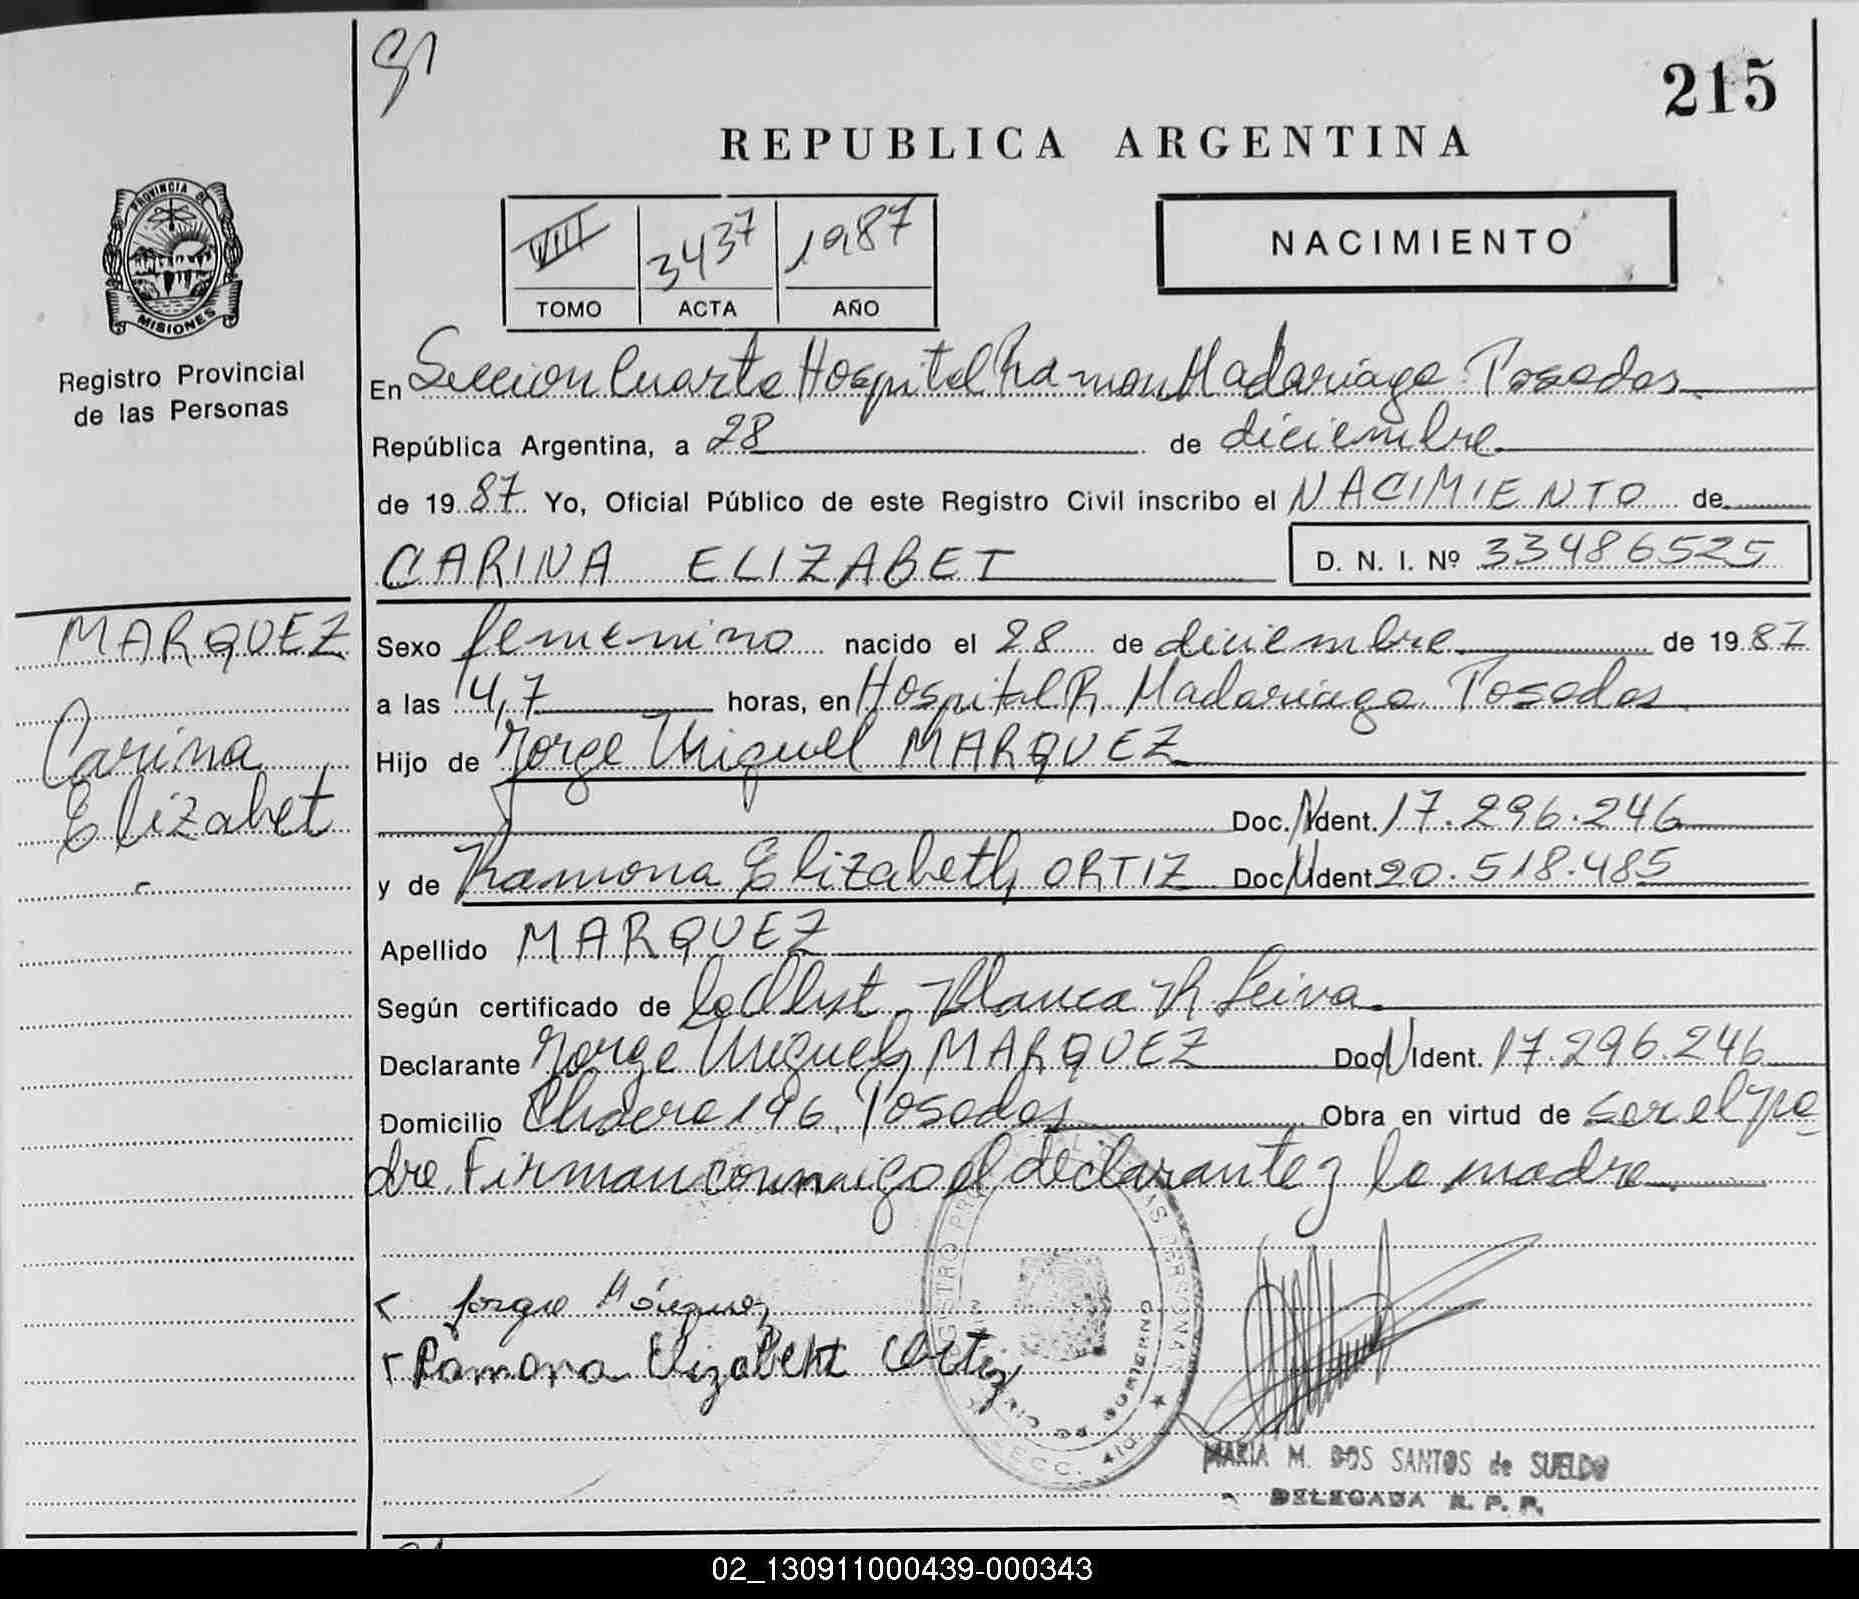 215
REPUBLICA ARGENTINA
PROVINCIA DE
MISIONES
Registro Provincial
de las Personas
VIII 3437 1987
TOMO ACTA AÑO
NACIMIENTO
En Seccion Cuarta Hospital Ramon Madariaga Posadas
República Argentina, a 28 de diciembre
de 1987 Yo, Oficial Público de este Registro Civil inscribo el NACIMIENTO de
CARINA ELIZABET D. N. I. Nº 33486525
MARQUEZ
Carina
Elizabet
Sexo femenino nacido el 28 de diciembre de 1987
a las 14,7 horas, en Hospital R. Madariaga Posadas
Hijo de Jorge Miguel MARQUEZ
Doc. Ident. 17.296.246
y de Ramona Elizabeth ORTIZ Doc Ident 20.518.485
Apellido MARQUEZ
Según certificado de la Obst. Blanca R. Leiva
Declarante Jorge Miguel MARQUEZ Doc Ident. 17.296.246
Domicilio Chacra 196 Posadas Obra en virtud de ser el pa
dre. Firman conmigo el declarante y la madre
Jorge Márquez
Ramona Elizabeth Ortiz
MARIA M. DOS SANTOS de SUELDO
DELEGADA R. P. P.
02_130911000439-000343